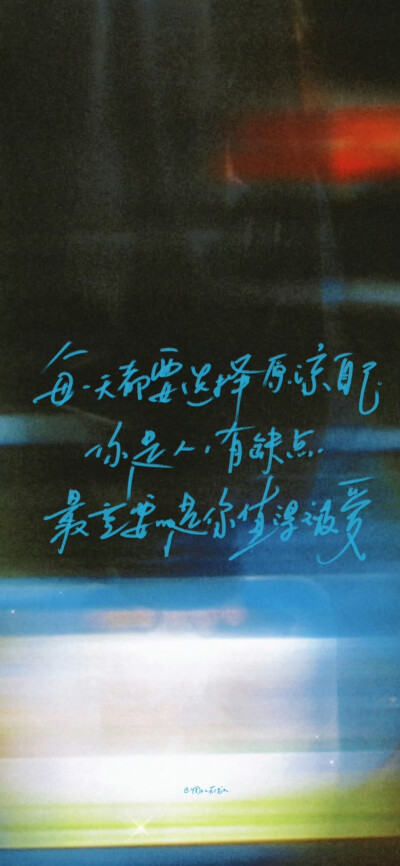 每一天都要选择原谅自己
你是人,有缺点
最重要的是你值得被爱